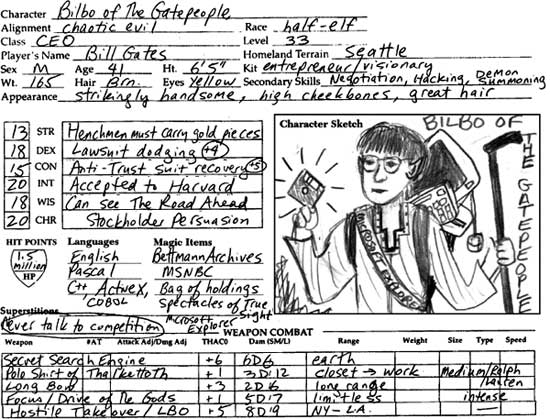 Character Bilbo of The Gatepeople
Alignment chaotic evil Race half-elf
Class CEO Level 33
Player's Name Bill Gates Homeland Terrain Seattle
Sex M Age 41 Ht. 6'5" Kit entrepreneur/visionary
Wt. 165 Hair Brn. Eyes Yellow Secondary Skills Negotiation, Hacking, Demon Summoning
Appearance strikingly handsome, high cheekbones, great hair
13 STR Henchmen must carry gold pieces
18 DEX Lawsuit dodging +4
15 CON Anti-Trust suit recovery +5
20 INT Accepted to Harvard
18 WIS Can see The Road Ahead
20 CHR Stockholder Persuasion
Character Sketch
BILBO OF
THE GATEPEOPLE
MICROSOFT EXPLORER
HIT POINTS
1.5 million
HP
Languages
English
Pascal
C++ ActiveX,
COBOL
Magic Items
Bettmann Archives
MSNBC
Bag of holdings
Spectacles of True Sight
Microsoft Explorer
Superstitions
Never talk to competition
WEAPON COMBAT
Weapon #AT Attack Adj/Dmg Adj THAC0 Dam (SM/L) Range Weight Size Type Speed
Secret Search Engine +6 6D6 earth
Polo Shirt of Tharkettoth +1 3D12 closet → work Medium/Ralph Lauren
Long Bow +3 2D6 long range
Focus/Drive of the Gods +1 5D17 limitless intense
Hostile Takeover/LBO +5 8D9 NY-LA.